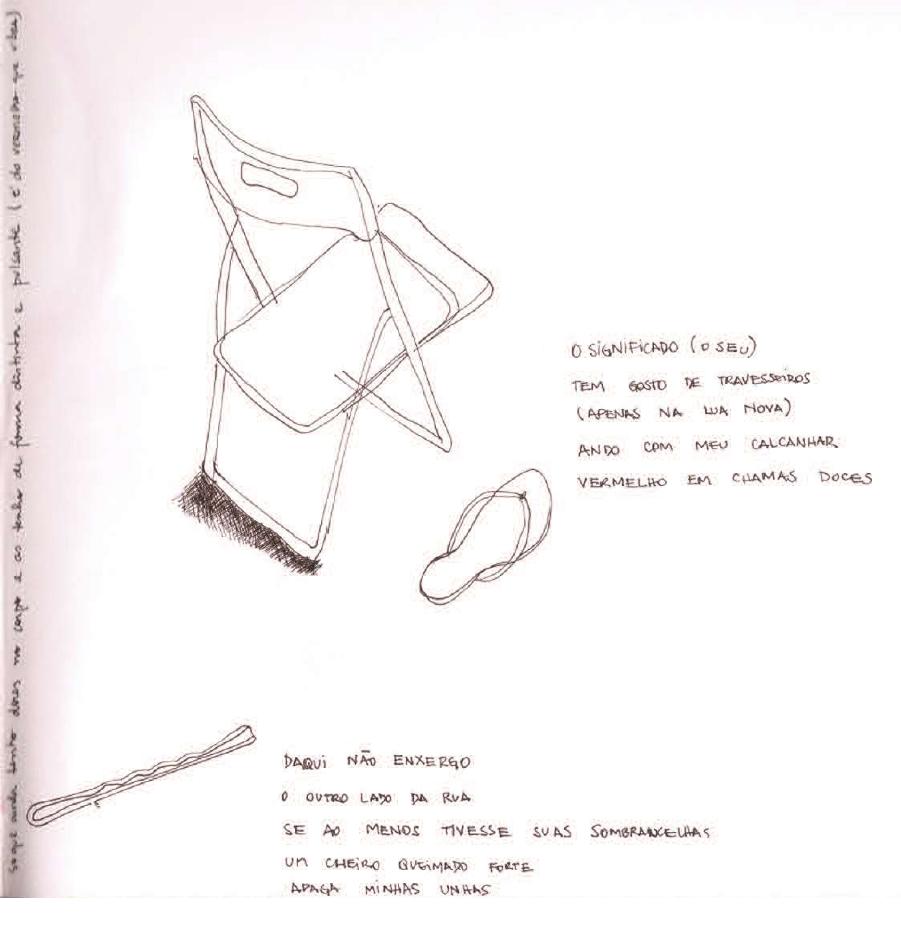 O SIGNIFICADO (O SEU)
TEM GOSTO DE TRAVESSEIROS
(APENAS NA LUA NOVA)
ANDO COM MEU CALCANHAR
VERMELHO EM CHAMAS DOCES
DAQUI NÃO ENXERGO
O OUTRO LADO DA RUA
SE AO MENOS TIVESSE SUAS SOMBRANCELHAS
UM CHEIRO QUEIMADO FORTE
APAGA MINHAS UNHAS
dores no corpo e as tenho de forma distinta e pulsante (é do vermelho que